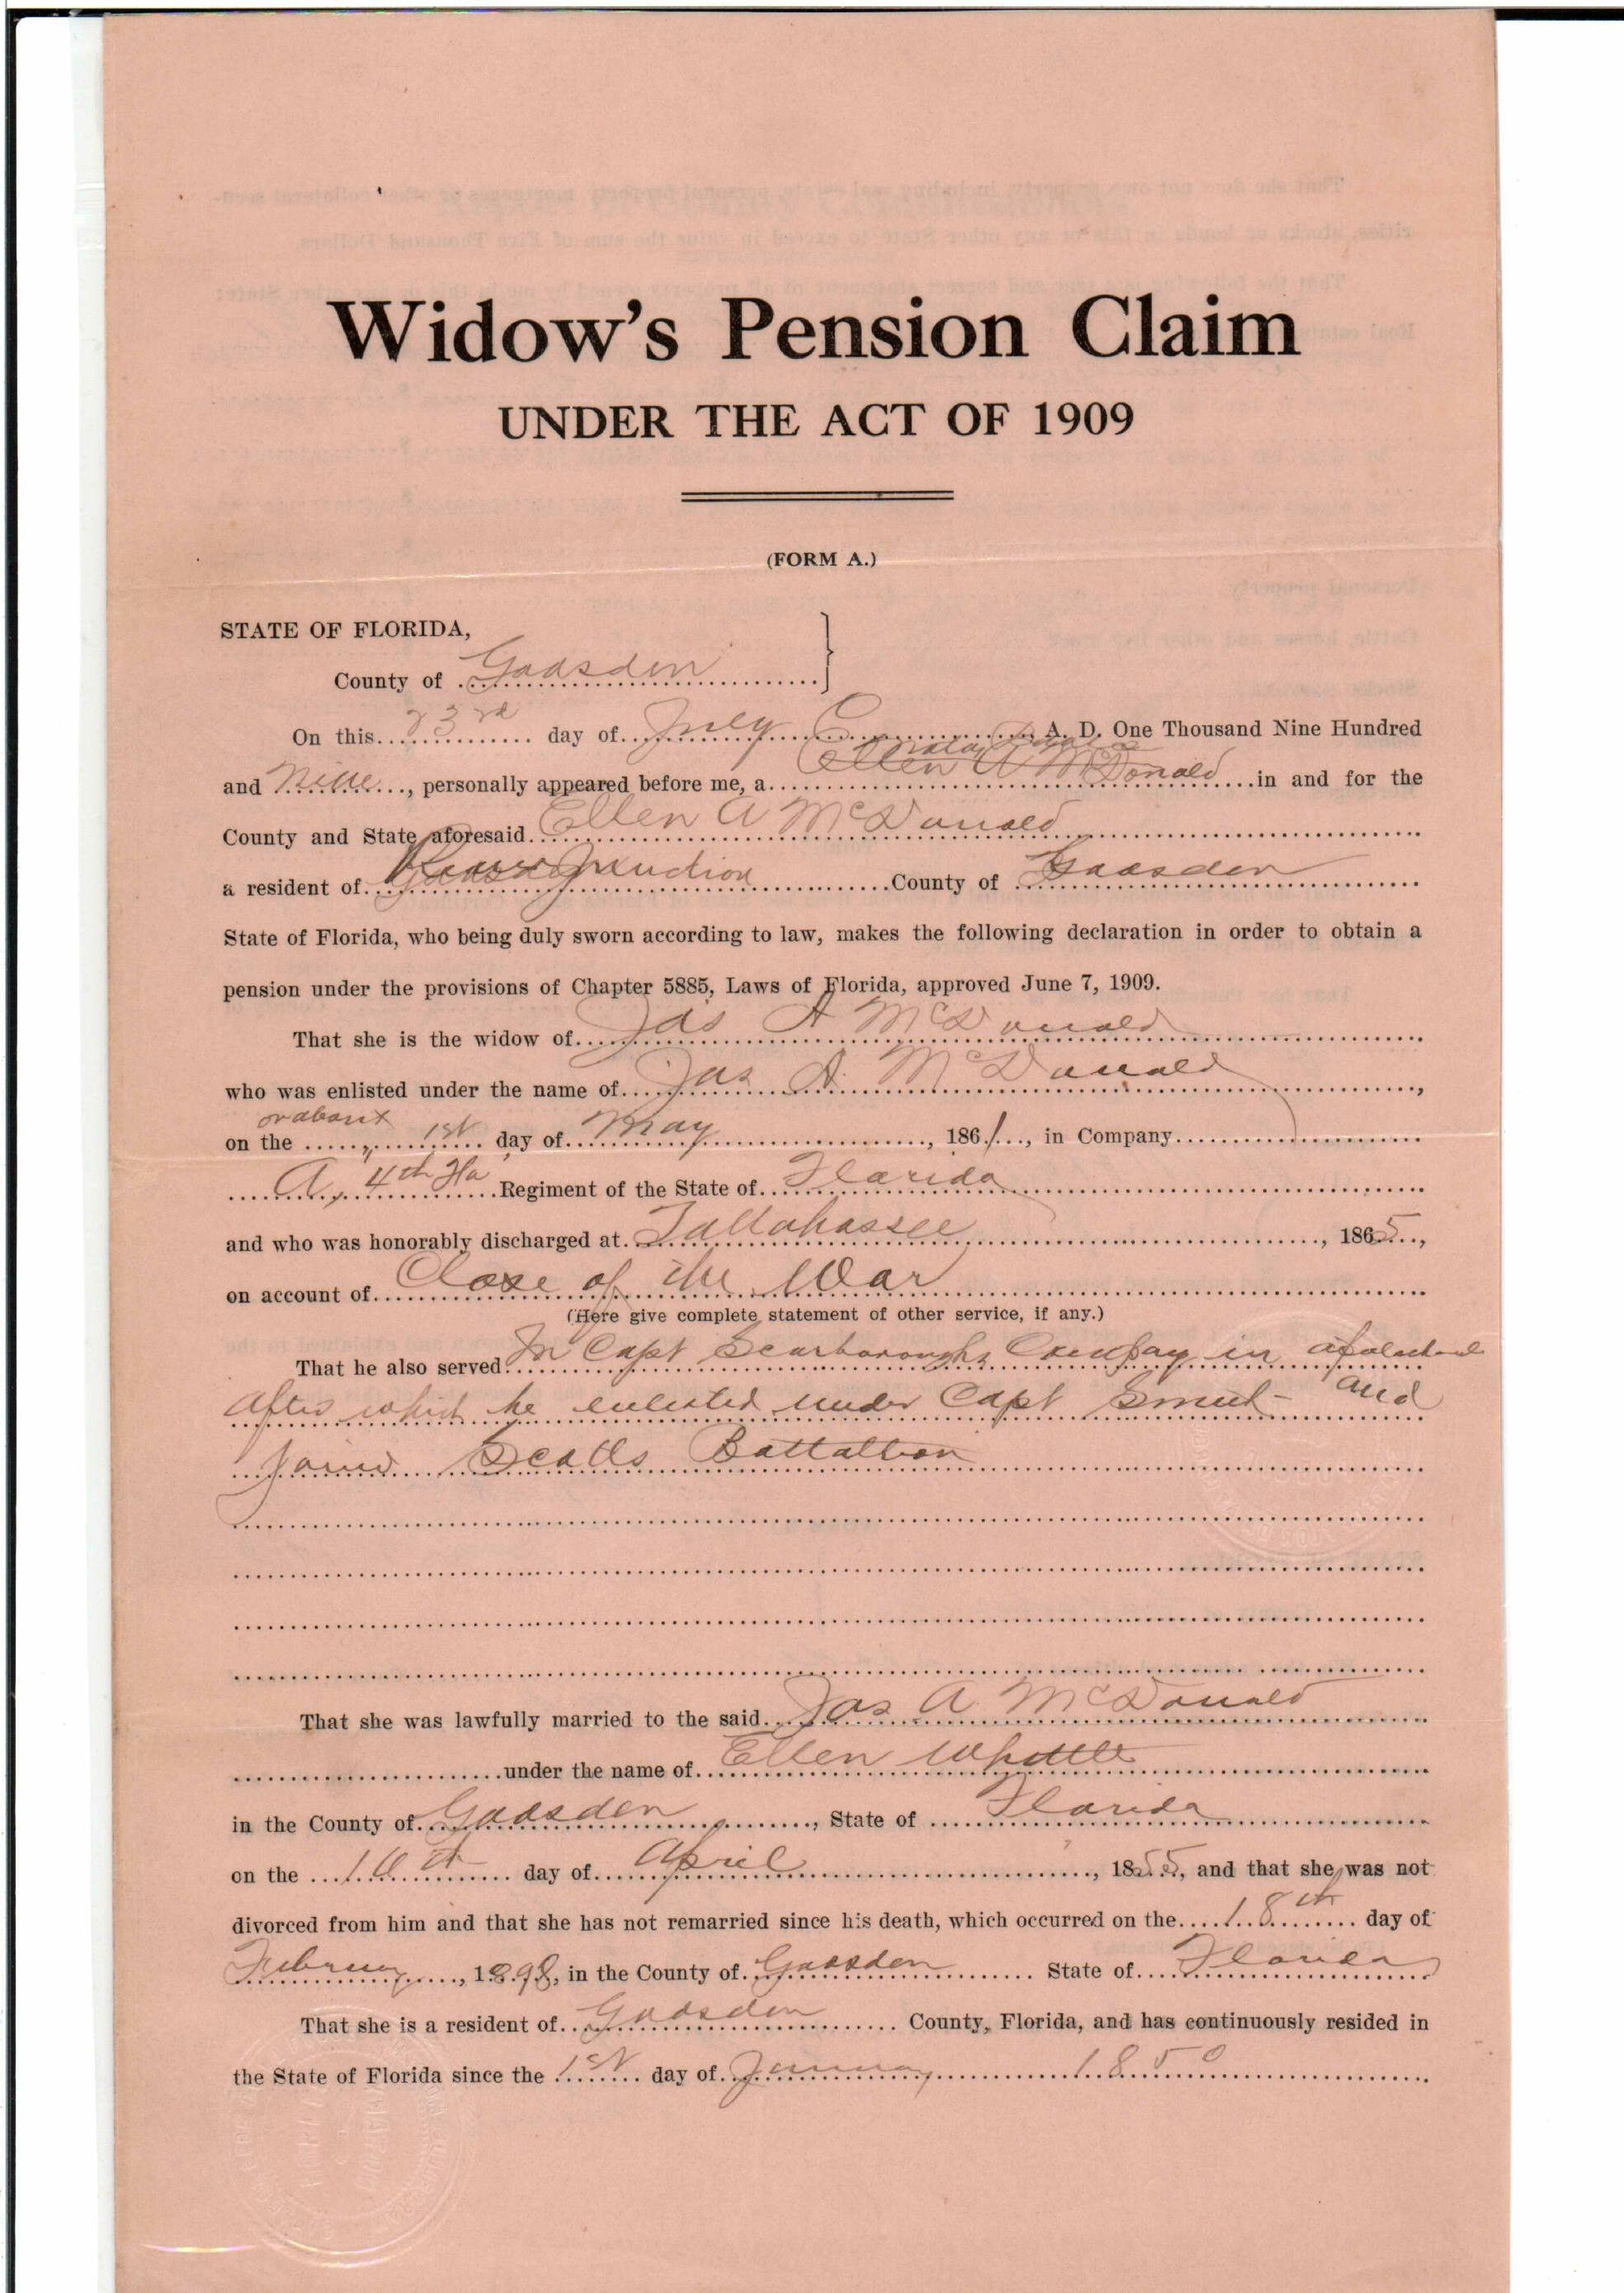 Widow's Pension Claim
UNDER THE ACT OF 1909
(FORM A.)
STATE OF FLORIDA,
County of Gadsden
On this 23rd day of July A. D. One Thousand Nine Hundred
and Nine, personally appeared before me, a Ellen A McDonald in and for the
County and State aforesaid Ellen A McDonald
a resident of Junction County of Gadsden
State of Florida, who being duly sworn according to law, makes the following declaration in order to obtain a
pension under the provisions of Chapter 5885, Laws of Florida, approved June 7, 1909.
That she is the widow of Jas A McDonald
who was enlisted under the name of Jas A McDonald,
or about
on the 1st day of May, 1861, in Company
A, 4th Fla Regiment of the State of Florida
and who was honorably discharged at Tallahassee, 1865,
on account of Close of the War
(Here give complete statement of other service, if any.)
That he also served In Capt Scarboroughs Company in
After which he enlisted under Capt and
Battallion
That she was lawfully married to the said Jas A McDonald
under the name of Ellen
in the County of Gadsden, State of Florida
on the day of April, 1855, and that she was not
divorced from him and that she has not remarried since his death, which occurred on the 18th day of
February, 1898, in the County of Gadsden State of Florida
That she is a resident of Gadsden County, Florida, and has continuously resided in
the State of Florida since the 1st day of January 1850